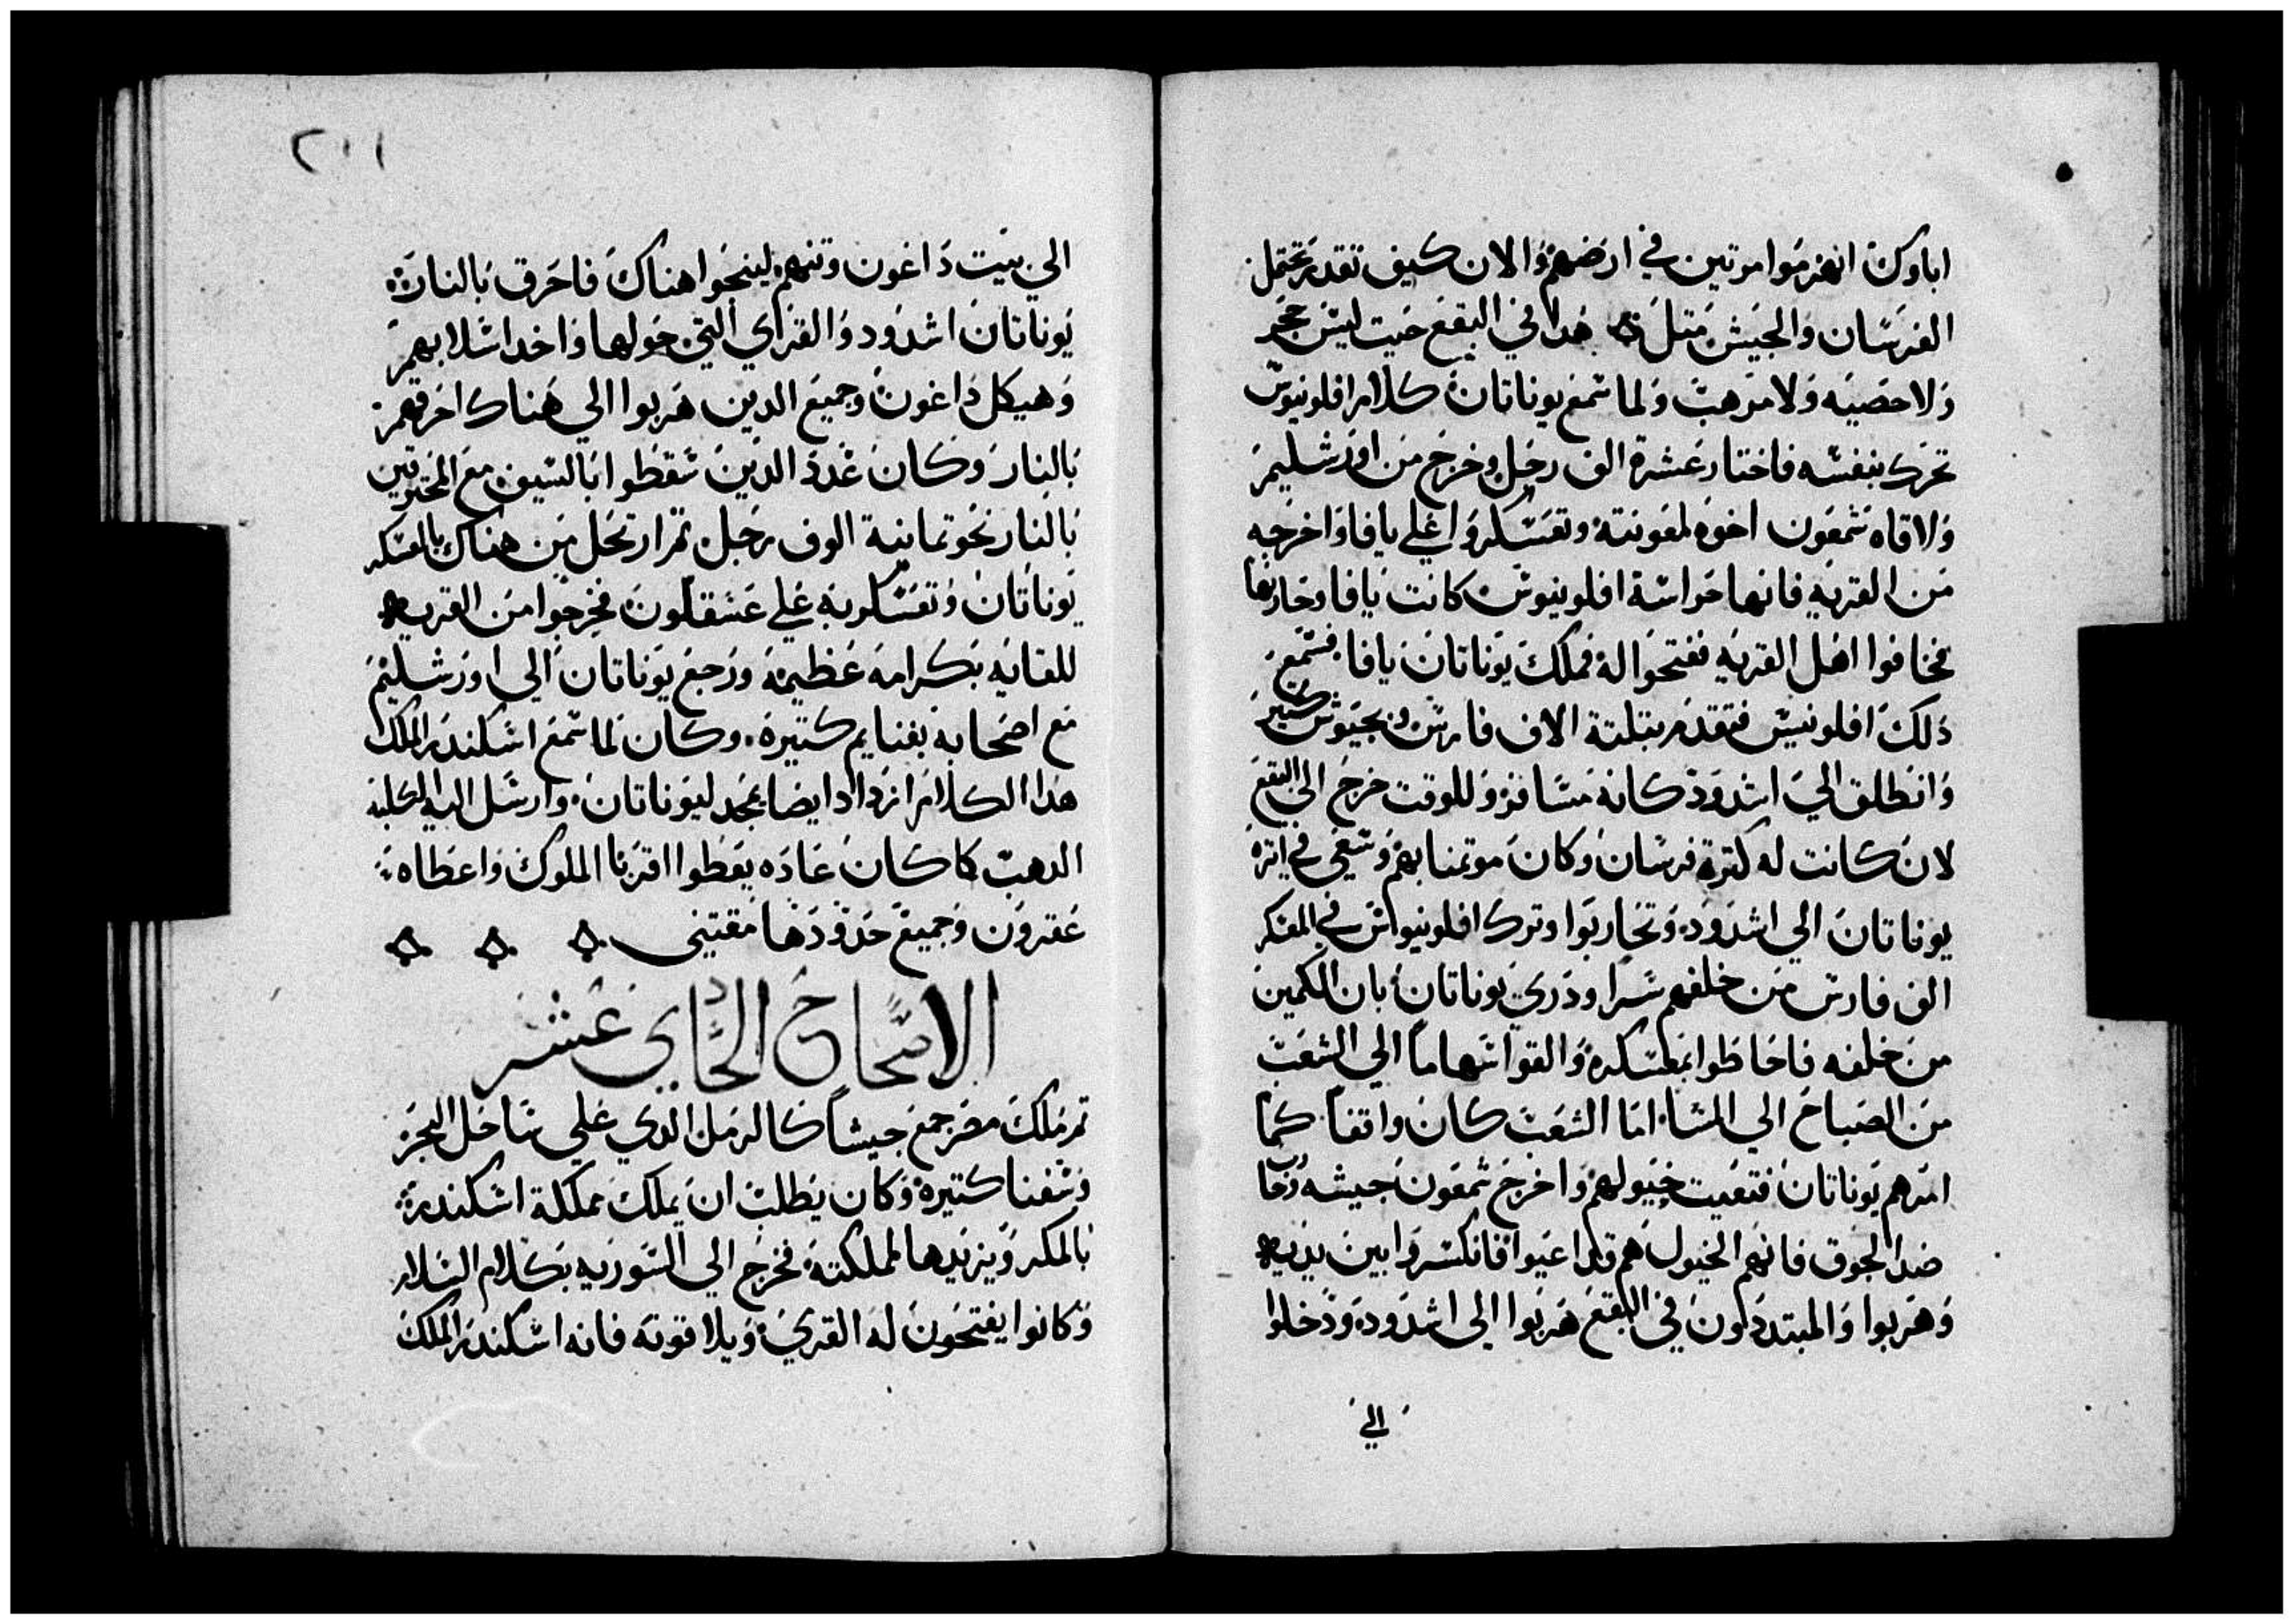 اباوك انهزموا مرتين في ارضهم والان كيف تقدر تحتمل
الفرسان والجيش متل هدا في البقع حيت ليس حجر
ولا حصيه ولا مرهب ولما سمع يوناتان كلام افلونيوس
تحرك بنفسه فاختار عشرة الف رجل وخرج من اورشليم
ولاقاه شمعون اخوه لمعونته وتعسكروا علي يافا واخرجه
من القريه فانها حراسة افلونيوس كانت يافا وحاربها
فخافوا اهل القريه ففتحوا له فملك يوناتان يافا فسمع
دلك افلونيس فتقدم بتلتة الاف فارس وبجيوش كتير
وانطلق الي اشدود كانه مسافر وللوقت خرج الي البقع
لان كانت له كترة فرسان وكان موتمنا بهم وسعي في اتره
يوناتان الي اشدود وتحاربوا وترك افلونيوس في المعسكر
الف فارس من خلفهم سرا ودري يوناتان بان الكمين
من خلفه فاحاطوا بمعسكره والقوا سهاما الي الشعب
من الصباح الي المسا اما الشعب كان واقفا كما
امرهم يوناتان فتعيت خيولهم واخرج شمعون جيشه وحارب
ضد الجوق فانهم الخيول هم قد اعيوا فانكسروا بين يديه
وهربوا والمبتددون في البقع هربوا الي اشدود ودخلوا
الي
٢٠١١
الي بيت داغون وتنهم لينجوا هناك فاحرق بالنار
يوناتان اشدود والقراي التي حولها واخد اسلابهم
وهيكل داغون وجميع الدين هربوا الي هناك احرقهم
بالنار وكان عدد الدين سقطوا بالسيف مع المحترقين
بالنار نحو تمانية الوف رجل تم ارتحل من هناك بالعسكر
يوناتان وتعسكر به علي عسقلون فخرجوا من القريه
للقايه بكرامه عظيمه ورجع يوناتان الي اورشليم
مع اصحابه بغنايم كتيره وكان لما سمع اسكندر الملك
هدا الكلام ازداد ايضا بمجد ليوناتان وارسل اليه الكلبة
الدهب كما كان عاده يعطوا اقربا الملوك واعطاه
عقرون وجميع حدودها مقتني
الاصحاح الحادي عشر
تم ملك مصر جمع جيشا كالرمل الدي علي ساحل البحر
وسفنا كتيره وكان يطلب ان يملك مملكة اسكندر
بالمكر ويزيدها لمملكته فخرج الي السوريه بكلام السلام
وكانوا يفتحون له القري ويلاقونه فانه اسكندر الملك